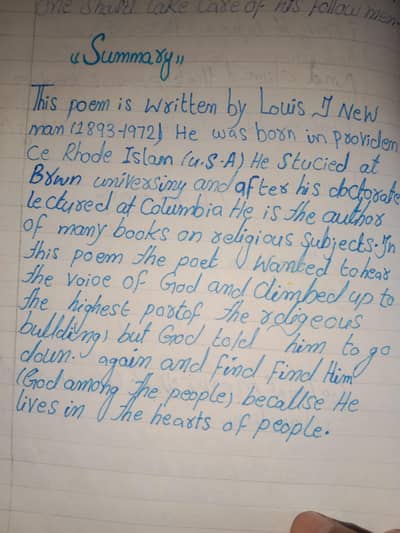 One should take care of his follow men.
"Summary"
This poem is written by Louis J New
man (1893-1972) He was born in providen
ce Rhode Islan (U.S.A) He Stucied at
Brwn universiny and after his doctorate
lectured at Columbia He is the author
of many books on religious Subjects. In
this poem the poet Wanted to hear
the voioe of God and Climbed up to
the highest partof the roligeous
bullding, but God told him to go
down. again and find Find Him
(God among the people) becallse He
lives in the hearts of people.